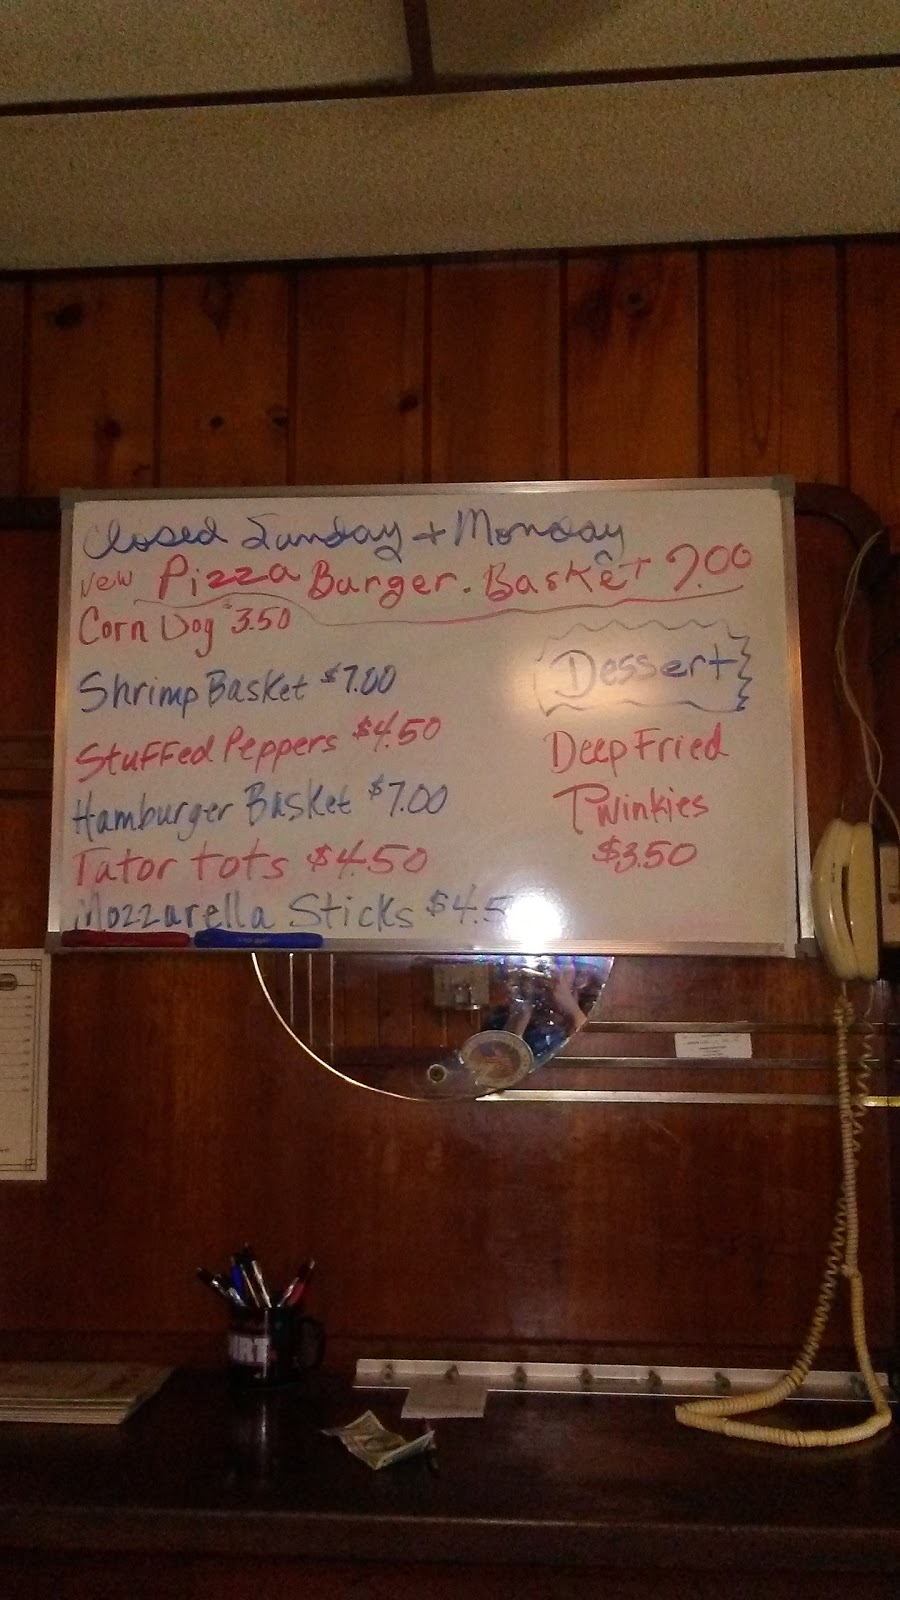 Closed Sunday + Monday
New Pizza Burger. Basket 7.00
Corn Dog $3.50
Shrimp Basket $7.00
Stuffed Peppers $4.50
Hamburger Basket $7.00
Tator tots $4.50
Mozzarella Sticks $4.5
Dessert
Deep Fried
Twinkies
$3.50